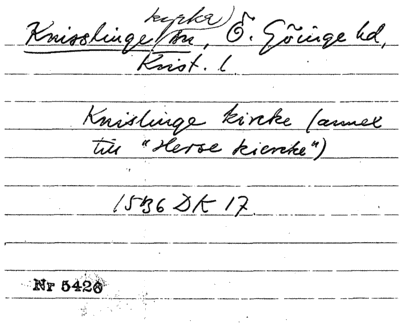 kyrka
Knisslinge sn, Ö. Göinge hd,
Krist. l.
Knislinge kircke (annex
till "Herse kiercke")
1536 DK 17.
Nr 5426